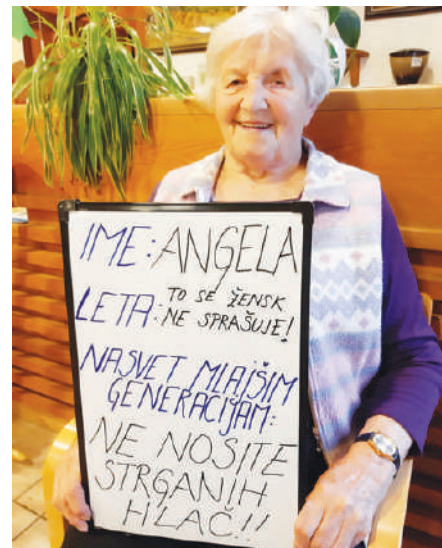 IME: ANGELA
LETA: TO SE ŽENSK
NE SPRAŠUJE!
NASVET MLAJŠIM
GENERACIJAM:
NE NOSITE
STRGANIH
HLAČ!!